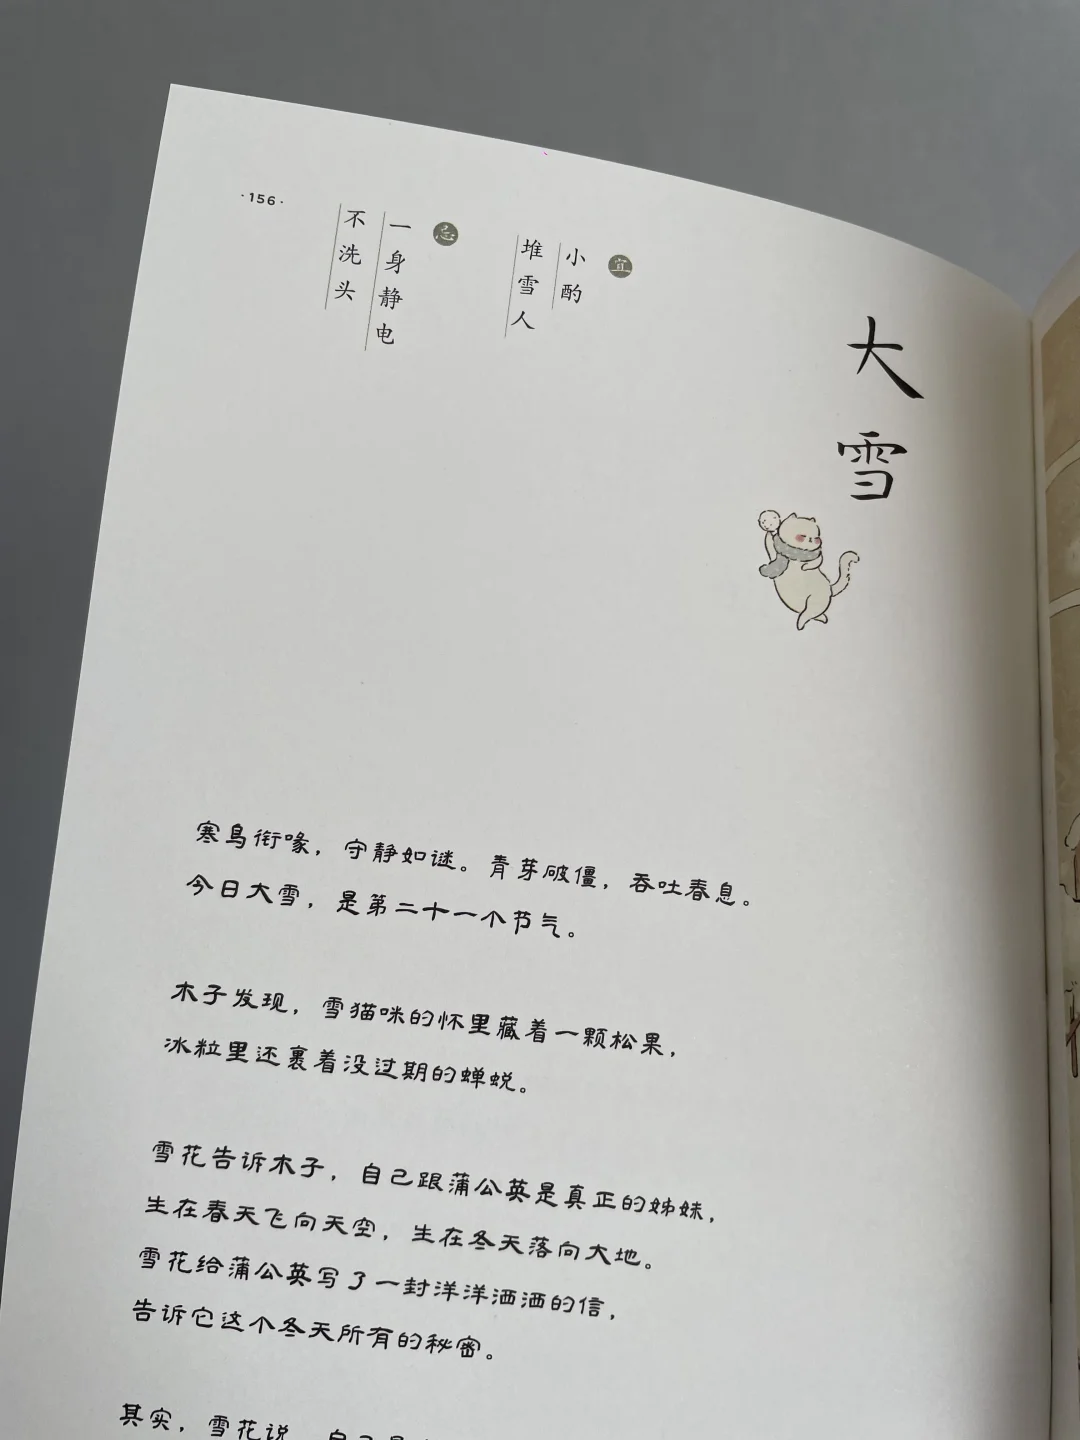 ·156·
大雪
宜
小酌
堆雪人
忌
一身静电
不洗头
寒鸟衔喙，守静如谜。青芽破僵，吞吐春息。
今日大雪，是第二十一个节气。
木子发现，雪猫咪的怀里藏着一颗松果，
冰粒里还裹着没过期的蝉蜕。
雪花告诉木子，自己跟蒲公英是真正的姊妹，
生在春天飞向天空，生在冬天落向大地。
雪花给蒲公英写了一封洋洋洒洒的信，
告诉它这个冬天所有的秘密。
其实，雪花说，自己是